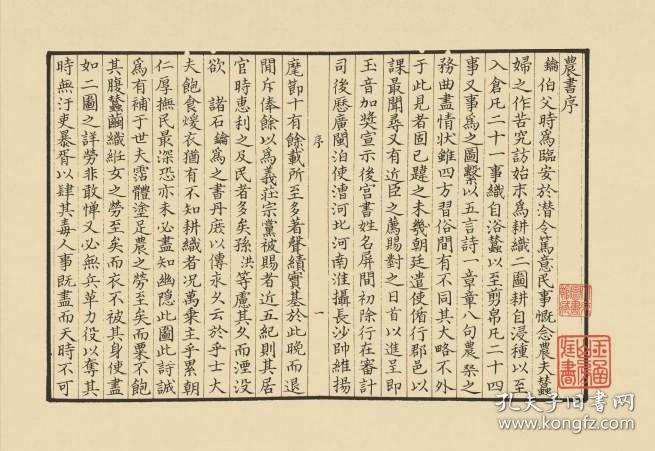 農書序
鑰伯父時爲臨安於潜令篤意民事慨念農夫蠶
婦之作苦究訪始末爲耕織二圖耕自浸種以至
入倉凡二十一事織自浴蠶以至剪帛凡二十四
事又事爲之圖繫以五言詩一章章八句農桒之
務曲盡情狀雖四方習俗間有不同其大略不外
于此見者固已韙之未幾朝廷遣使循行郡邑以
課最聞尋又有近臣之薦賜對之日首以進呈即
玉音加奬宣示後宮書姓名屏間初除行在審計
司後歷廣閩洎使漕河北河南淮攝長沙帥維揚
序
一
麾節十有餘載所至多著聲績實基於此晚而退
閒斥俸餘以爲義莊宗黨被賜者近五紀則其居
官時惠利之及民者多矣孫洪等慮其久而湮没
欲 諸石鑰爲之書丹庶以傳永久云於乎士大
夫飽食煖衣猶有不知耕織者况萬乗主乎累朝
仁厚撫民最深恐亦未必盡知幽隱此圖此詩誠
爲有補于世夫霑體塗足農之勞至矣而粟不飽
其腹蠶繭織絍女之勞至矣而衣不被其身使盡
如二圖之詳勞非敢憚又必無兵革力役以奪其
時無汙吏暴胥以肆其毒人事既盡而天時不可
孔夫子旧书网
book.kongfz.com